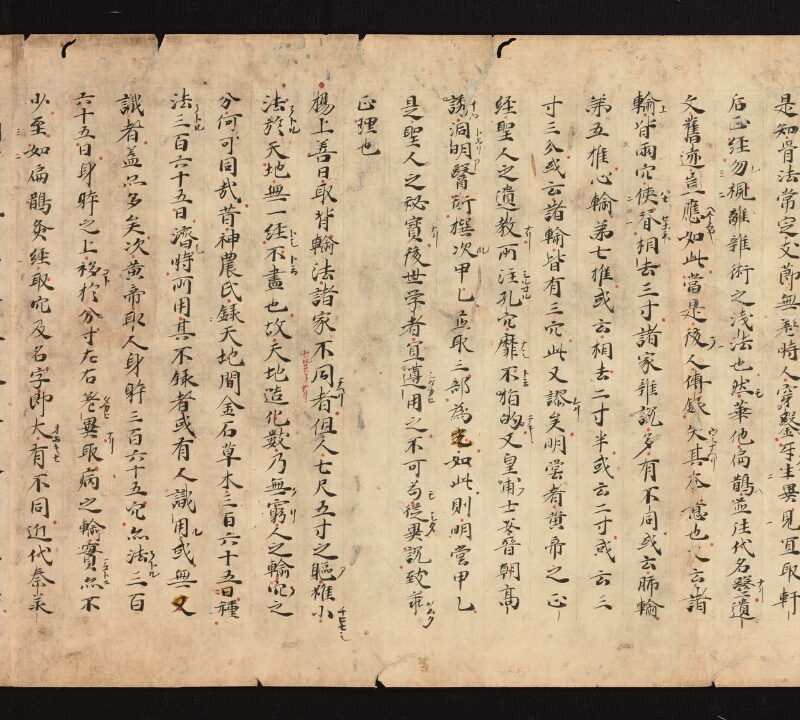 是知骨法常定支節無差時人穿鑿互生異見宜取軒
后正経勿視離雜術之淺法也然華他扁鵲並往代名醫遺
文舊迹豈應如此當是後人傳録失其本意也又云諸
輸皆兩穴俠脊相去三寸諸家雜説多有不同或云肺輸
第五椎心輸第七椎或云相去二寸半或云二寸或云三
寸三分或云諸輸皆有三穴此又謬矣明堂者黄帝之正
経聖人之遺教所注孔穴靡不指的又皇甫士安晉朝高
洞明醫術撰次甲乙並取三部為定如此則明堂甲乙
是聖人之秘寶後世学者宜遵用之不可苟従異説致乖
正理也
楊上善曰取背輸法諸家不同者但人七尺五寸之軀雖小
法於天地無一経不盡也故天地造化數乃無窮人之輸穴之
分何可同哉昔神農氏録天地間金石草木三百六十五日種
法三百六十五日濟時所用其不録者或有人識用或無又
識者盖亦多矣次黄帝取人身體三百六十五穴亦法三百
六十五日身體之上移於分寸左右差異取病之輸實亦不
少至如扁鵲灸経取穴及名字即大有不同近代秦羕